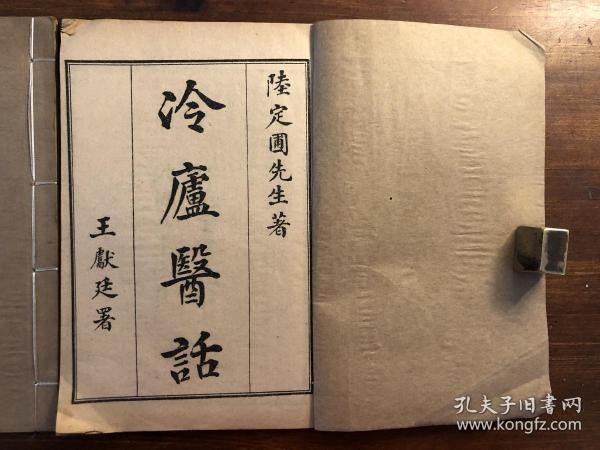 陸定圃先生著
冷廬醫話
王獻廷署
孔夫子旧书网
www.kongfz.com